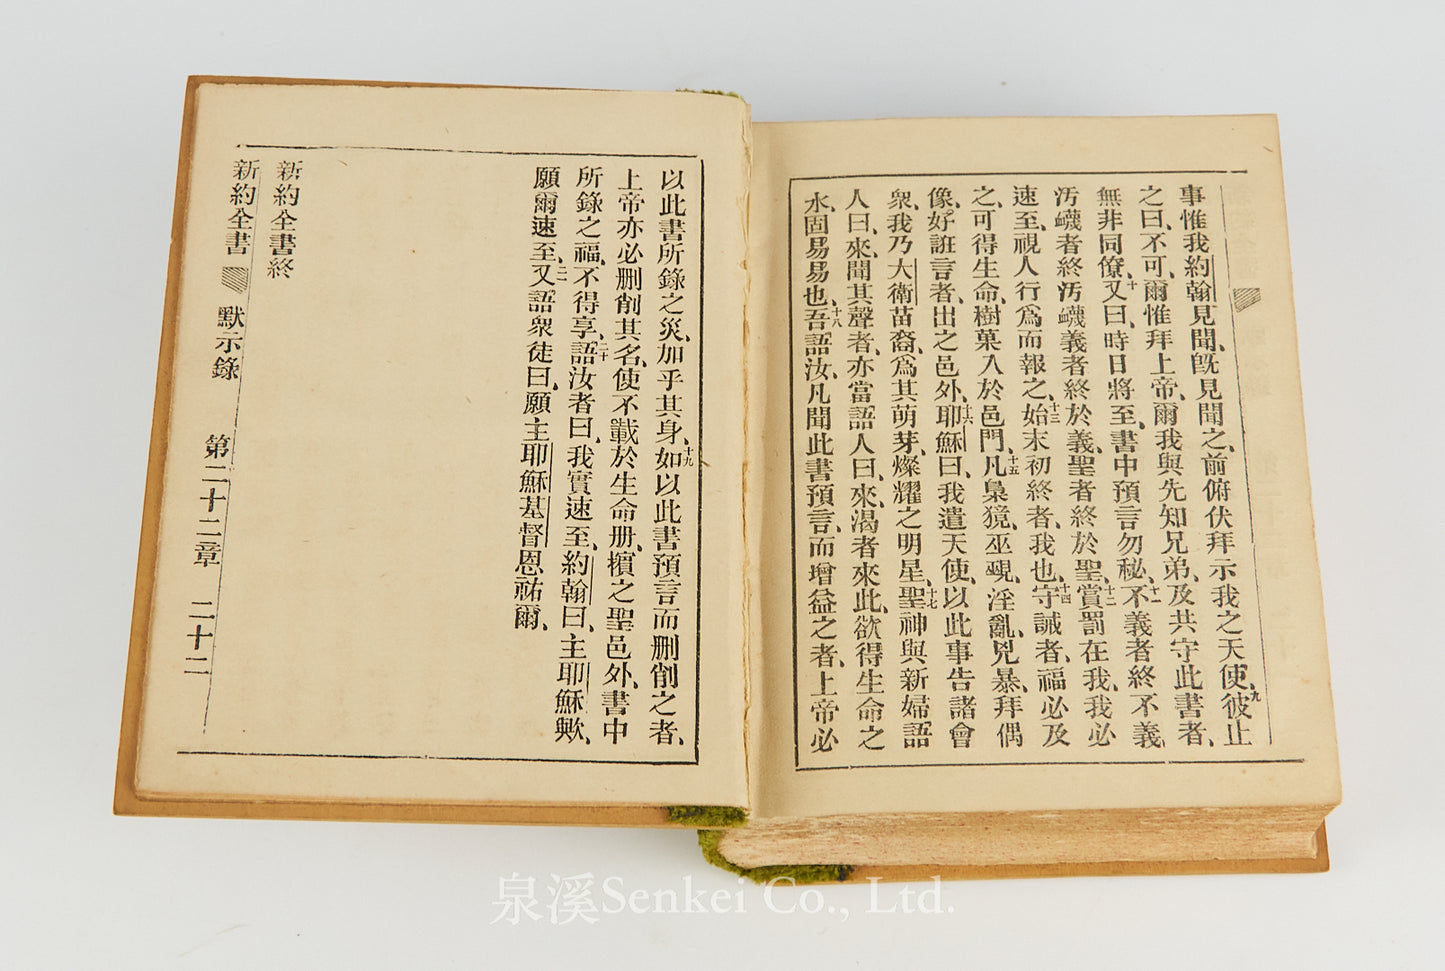 事惟我約翰見聞、旣見聞之、前俯伏拜示我之天使、九彼止
之曰、不可、爾惟拜上帝、爾我與先知兄弟、及共守此書者、
無非同僚、十又曰、時日將至、書中預言勿秘、十一不義者終不義、
汚衊者終汚衊、義者終於義、聖者終於聖、十二賞罰在我、我必
速至、視人行爲而報之、十三始末初終者、我也、十四守誡者、福必及
之、可得生命樹菓、入於邑門、十五凡梟獍、巫覡、淫亂、兇暴、拜偶
像、好誑言者、出之邑外、十六耶穌曰、我遣天使、以此事告諸會
衆、我乃大衛苗裔、爲其萌芽、燦耀之明星、十七聖神與新婦語
人曰、來、聞其聲者、亦當語人曰、來、渴者來此、欲得生命之
水、固易易也、十八吾語汝、凡聞此書預言、而增益之者、上帝必
以此書所錄之災、加乎其身、十九如以此書預言而删削之者、
上帝亦必删削其名、使不載於生命册、擯之聖邑外、書中
所錄之福、不得享、二十語汝者曰、我實速至、約翰曰、主耶穌歟、
願爾速至、二一又語衆徒曰、願主耶穌基督恩祐爾、
新約全書終
新約全書 默示錄 第二十二章 二十二
泉溪Senkei Co., Ltd.